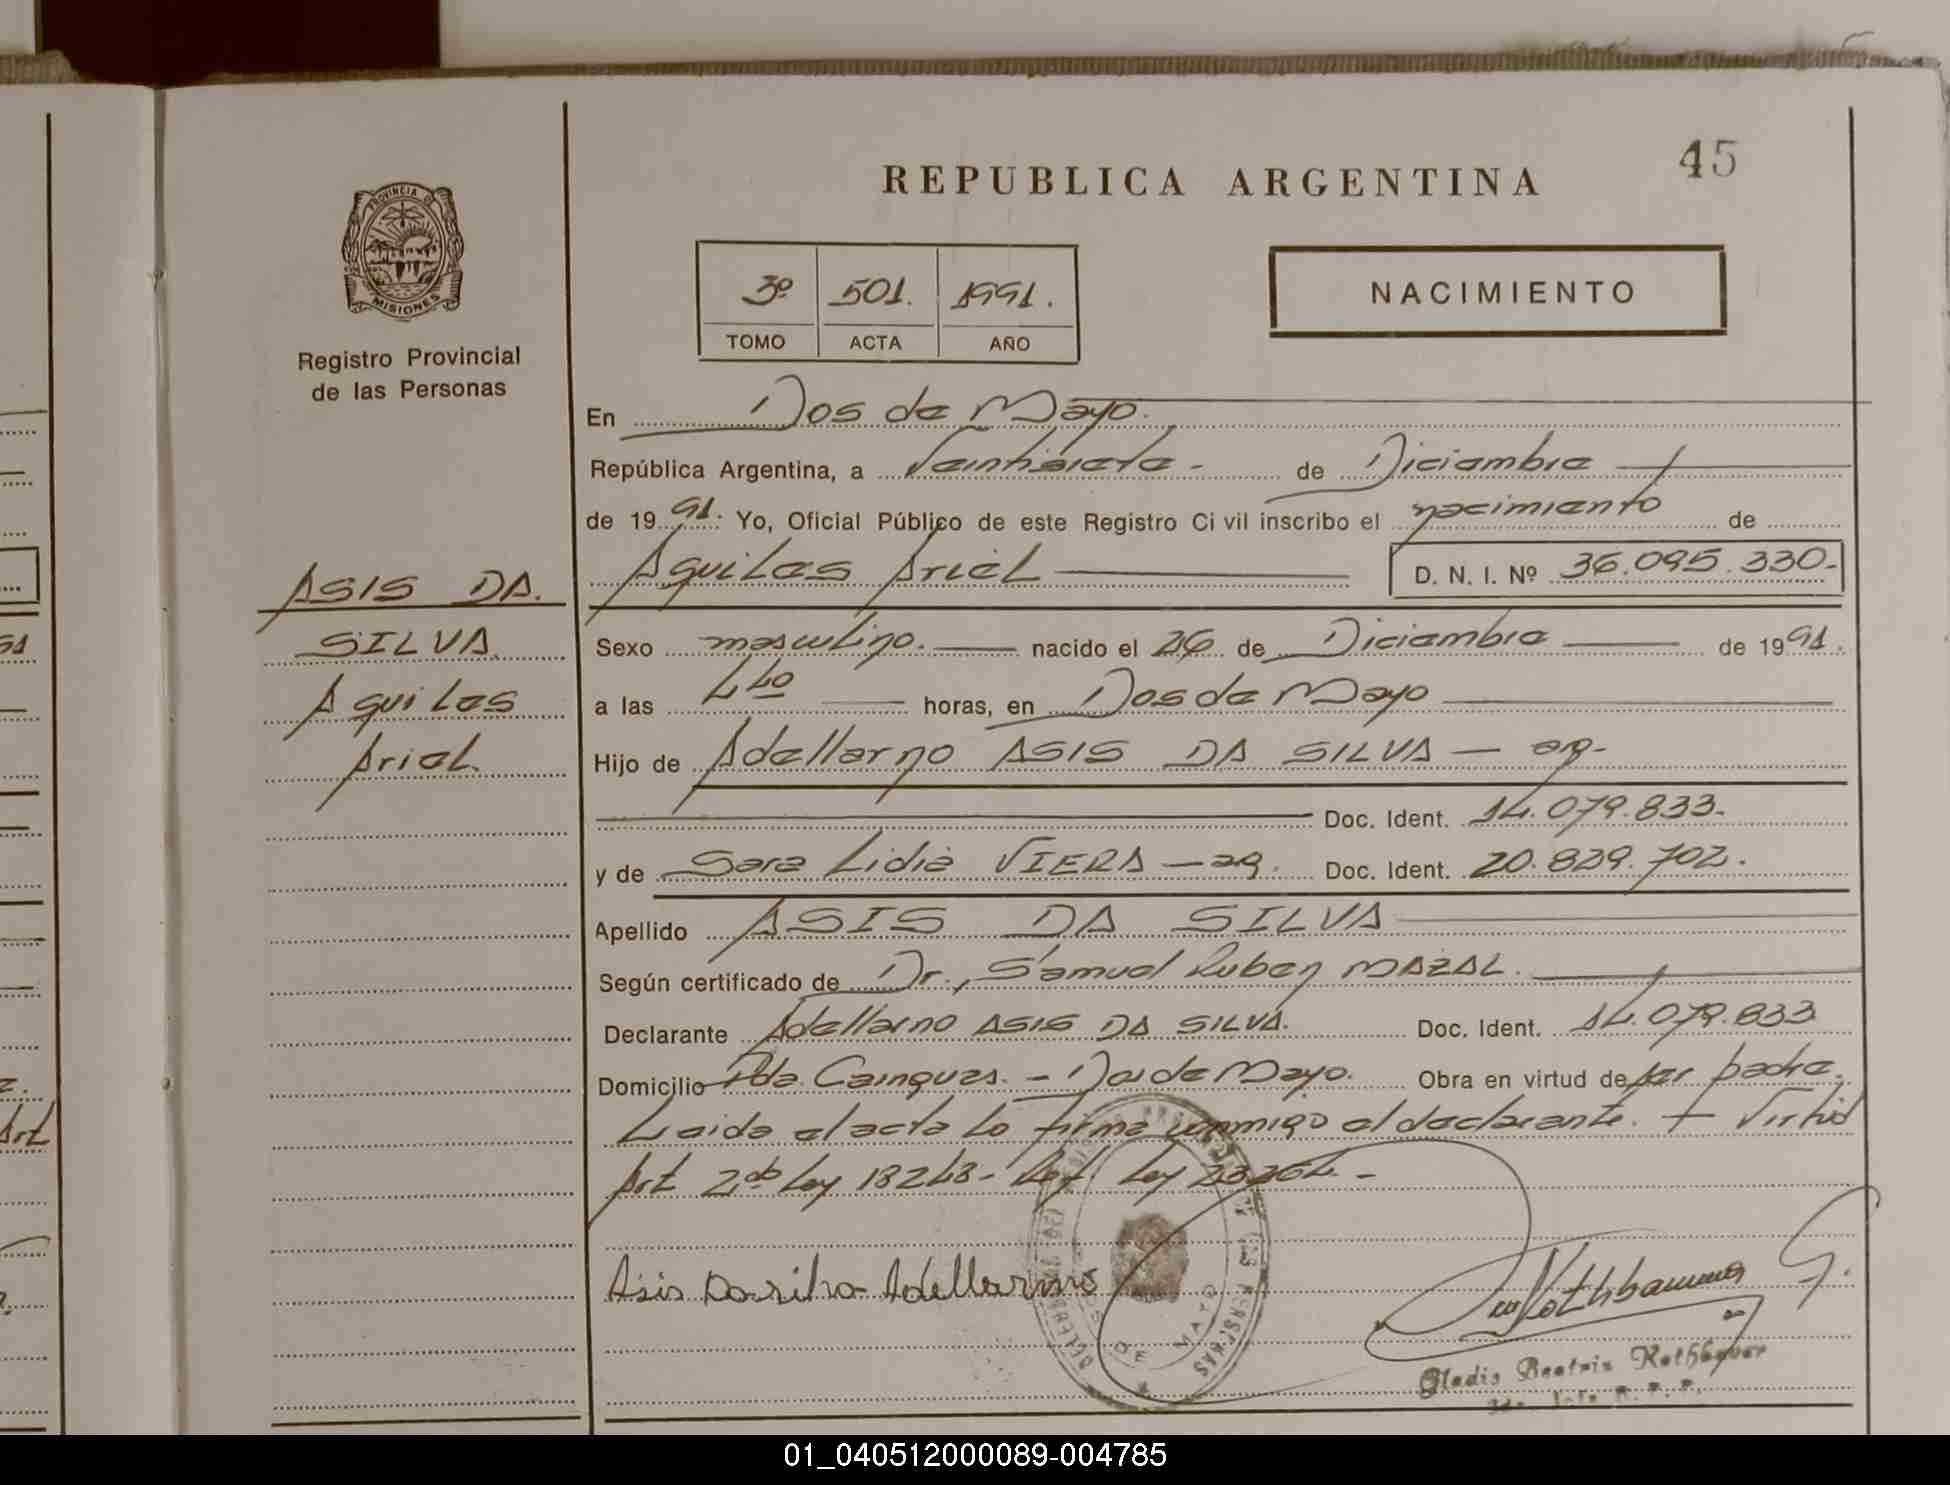 45
REPUBLICA ARGENTINA
PROVINCIA DE
MISIONES
Registro Provincial
de las Personas
3º 501. 1991.
TOMO ACTA AÑO
NACIMIENTO
En Dos de Mayo.
República Argentina, a Veintisiete - de Diciembre
de 19 91. Yo, Oficial Público de este Registro Civil inscribo el nacimiento de
Aquiles Ariel D. N. I. Nº 36.095.330-
ASIS DA.
SILVA
Aquiles
Ariel.
Sexo masculino. nacido el 26 de Diciembre de 1991.
a las horas, en Dos de Mayo
Hijo de Adellarno ASIS DA SILVA — ar-
Doc. Ident. 14.079.833-
y de Sara Lidia VIERA — ar. Doc. Ident. 20.829.702.
Apellido ASIS DA SILVA
Según certificado de Dr., Samuel Ruben MAZAL.
Declarante Adellarno ASIS DA SILVA. Doc. Ident. 14.079.833
Domicilio Pda. Cainguas. - Dos de Mayo. Obra en virtud de ser padre.
Leida el acta lo firma conmigo el declarante. + Virtud
Art 2do Ley 18248- Ref Ley 23264.-
Asis Dasilva Adellarmo
DE MAYO
Gladis Beatriz Rothbauer
01_040512000089-004785